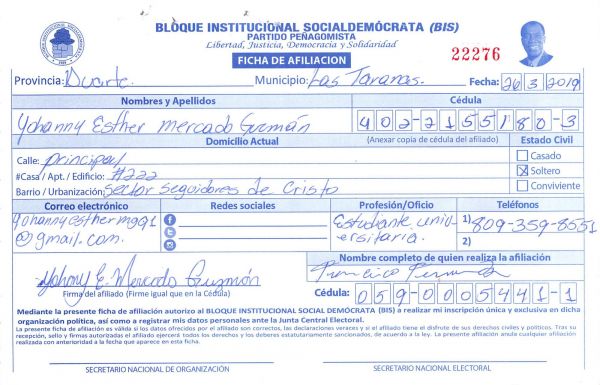 BLOQUE INSTITUCIONAL SOCIALDEMÓCRATA (BIS)
PARTIDO PEÑAGOMISTA
Libertad, Justicia, Democracia y Solidaridad
FICHA DE AFILIACION
22276
Provincia: Duarte. Municipio: Las Taranas. Fecha: 26 3 2019
Nombres y Apellidos Cédula
Yohanny Esther Mercado Guzmán 402-2155180-3
Domicilio Actual (Anexar copia de cédula del afiliado) Estado Civil
Calle: principal Casado
#Casa / Apt. / Edificio: #222 X Soltero
Barrio / Urbanización: Sector Seguidores de Cristo Conviviente
Correo electrónico Redes sociales Profesión/Oficio Teléfonos
Yohannyesthermg91 Estudiante univ- 1) 809-359-8551
@gmail.com. ersitaria. 2)
Nombre completo de quien realiza la afiliación
Yohnny E. Mercado Guzmán Francisco
Firma del afiliado (Firme igual que en la Cédula) Cédula: 059-0005441-1
Mediante la presente ficha de afiliación autorizo al BLOQUE INSTITUCIONAL SOCIAL DEMÓCRATA (BIS) a realizar mi inscripción única y exclusiva en dicha
organización política, así como a registrar mis datos personales ante la Junta Central Electoral.
La presente ficha de afiliación es válida si los datos ofrecidos por el afiliado son correctos, las declaraciones veraces y si el afiliado tiene el disfrute de sus derechos civiles y políticos. Tras su
recepción, sello y firmas autorizadas el afiliado ejercerá todos los derechos y los deberes estatutariamente sancionados, de acuerdo a la ley. La presente afiliación anula cualquier afiliación
realizada con anterioridad a la fecha que aparece en esta ficha.
SECRETARIO NACIONAL DE ORGANIZACIÓN SECRETARIO NACIONAL ELECTORAL